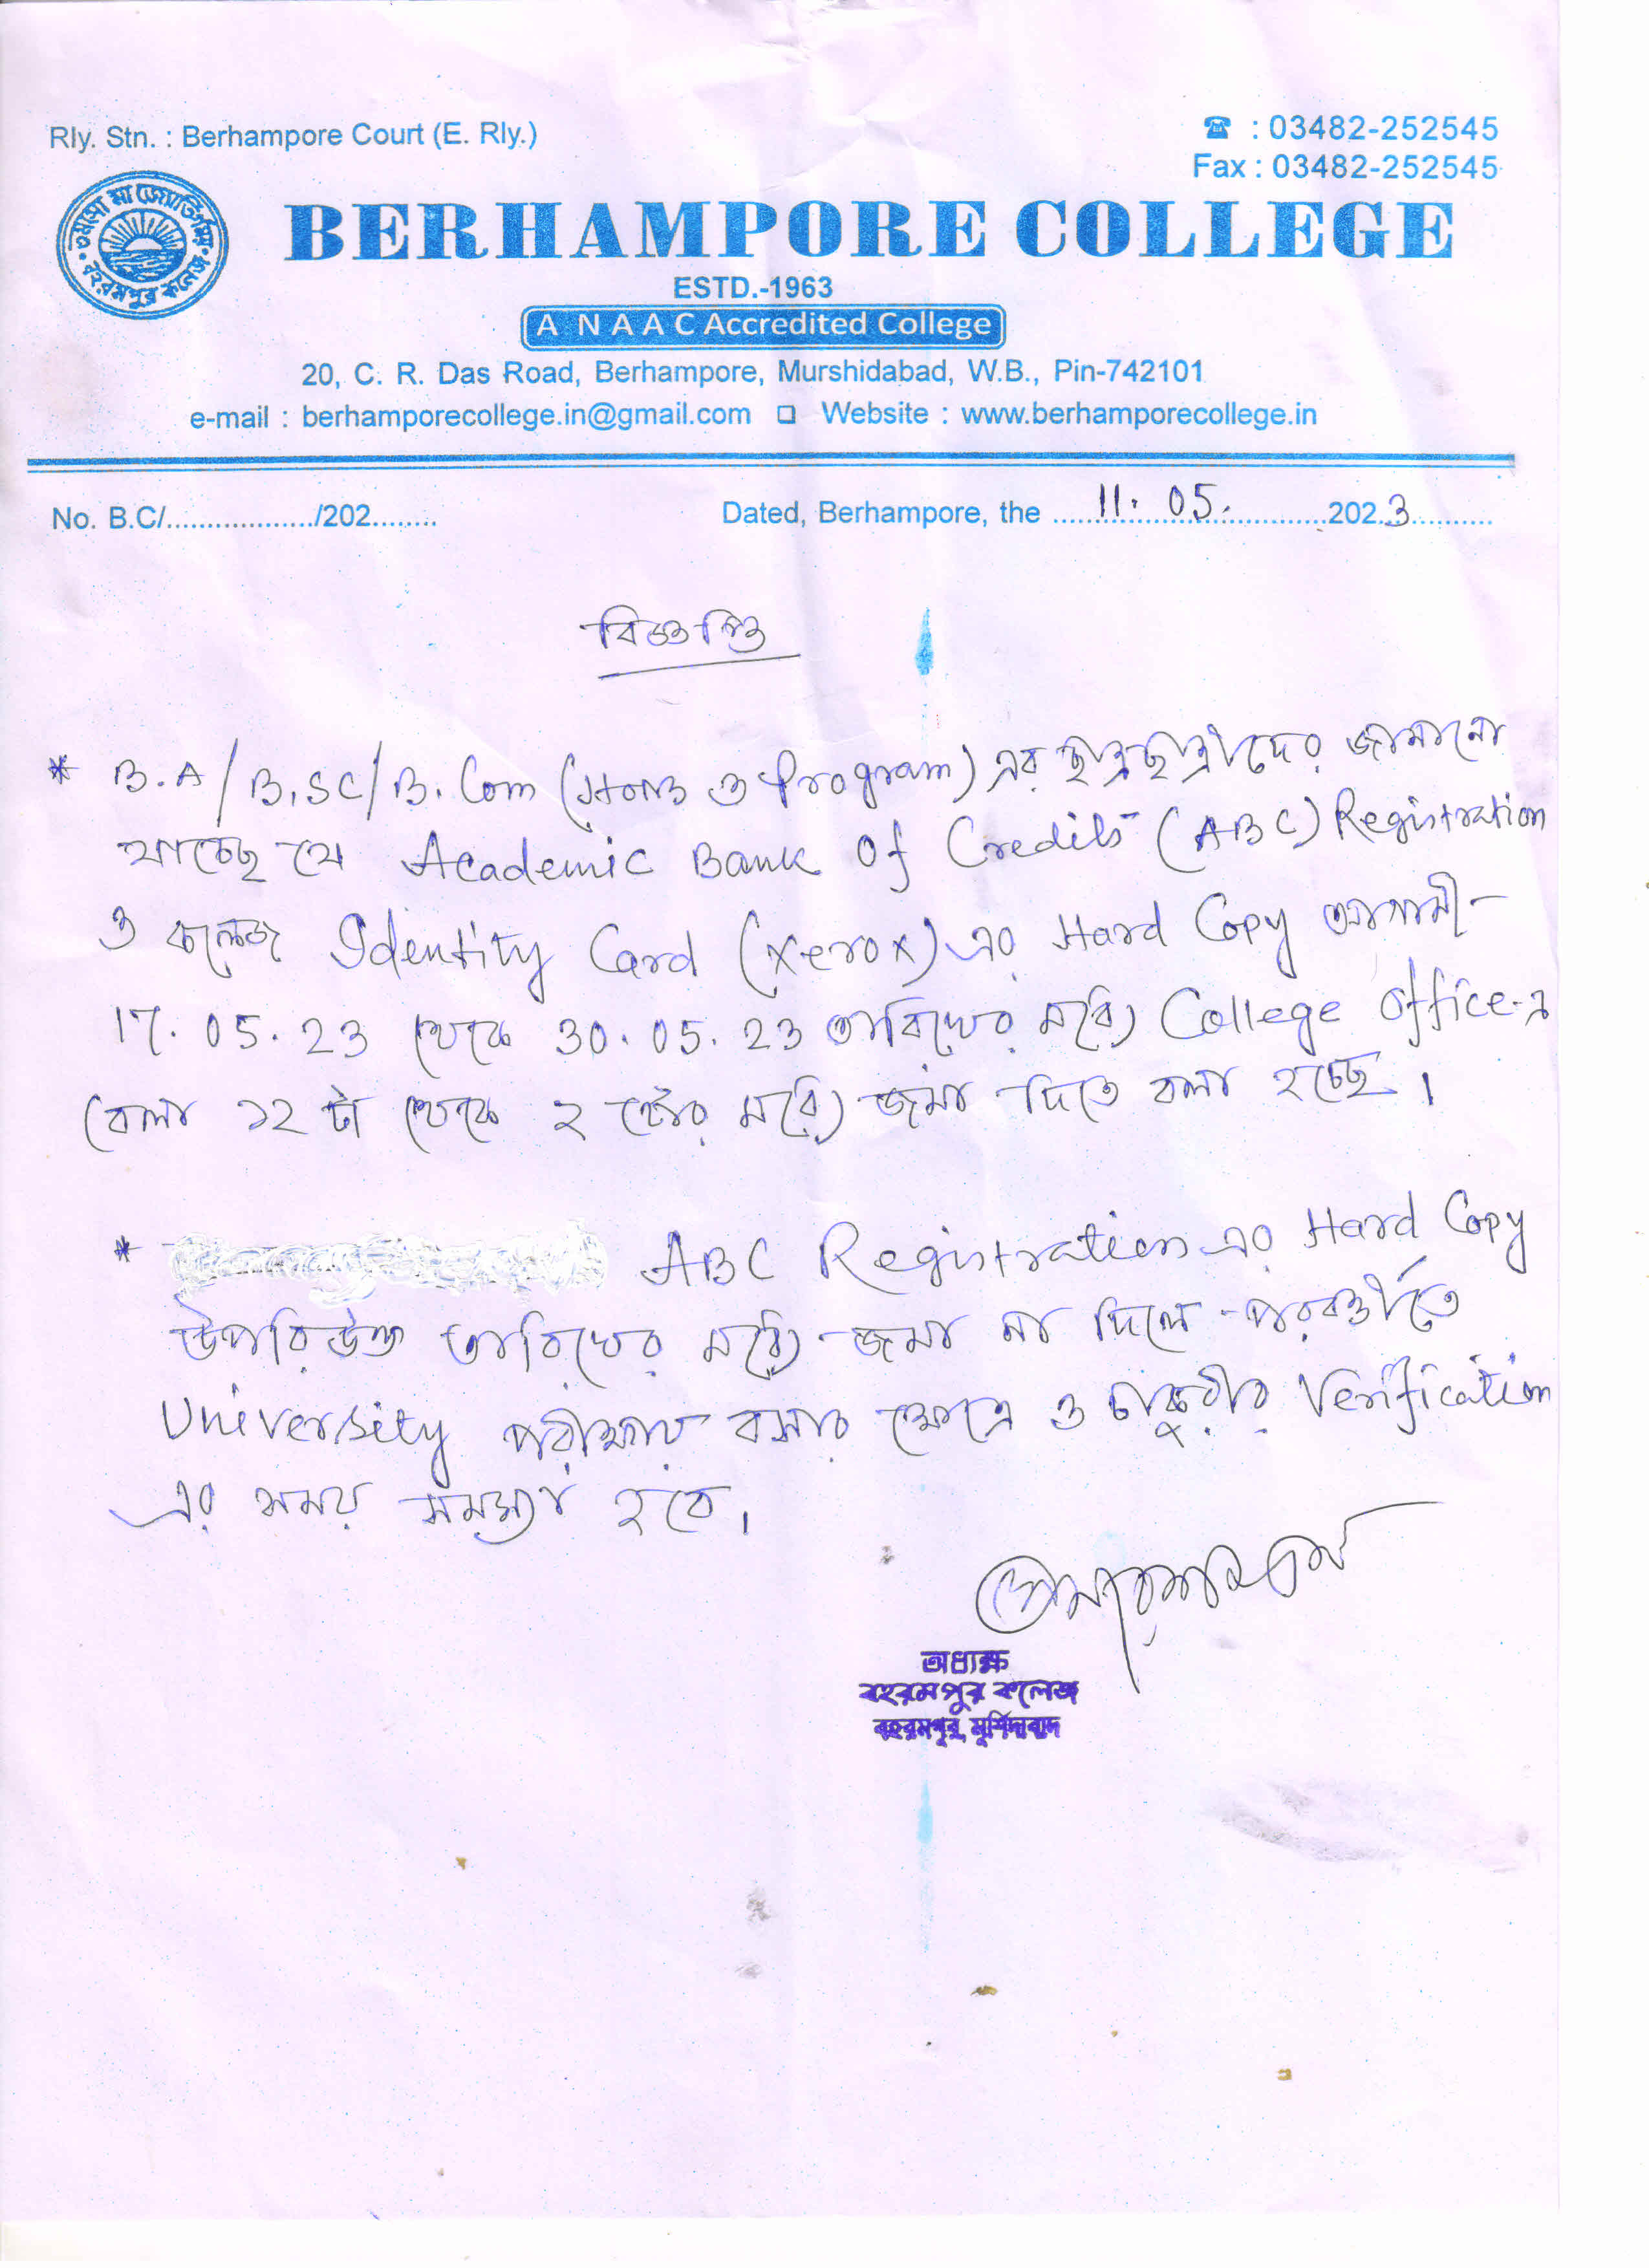 Rly. Stn. : Berhampore Court (E. Rly.)
☎ : 03482-252545
Fax : 03482-252545
তমসো মা জ্যোতির্গময়
বহরমপুর কলেজ
BERHAMPORE COLLEGE
ESTD.-1963
A NAAC Accredited College
20, C. R. Das Road, Berhampore, Murshidabad, W.B., Pin-742101
e-mail : berhamporecollege.in@gmail.com □ Website : www.berhamporecollege.in
No. B.C/................../202........ Dated, Berhampore, the ....11. 05. ....2023..........
বিজ্ঞপ্তি
* B.A/B.SC/B.Com (Hons ও Program) এর ছাত্রছাত্রীদের জানানো
যাচ্ছে যে Academic Bank of Credits (ABC) Registration
ও কলেজ Identity Card (Xerox) এর Hard Copy আগামী
17.05.23 থেকে 30.05.23 তারিখের মধ্যে College office-এ
বেলা ১২ টা থেকে ২ টোর মধ্যে জমা দিতে বলা হচ্ছে।
* ABC Registration এর Hard Copy
উপরিউক্ত তারিখের মধ্যে জমা না দিলে পরবর্ত্তীতে
University পরীক্ষায় বসার ক্ষেত্রে ও চাকুরীর Verification
এর সময় সমস্যা হবে।
অধ্যক্ষ
বহরমপুর কলেজ
বহরমপুর, মুর্শিদাবাদ